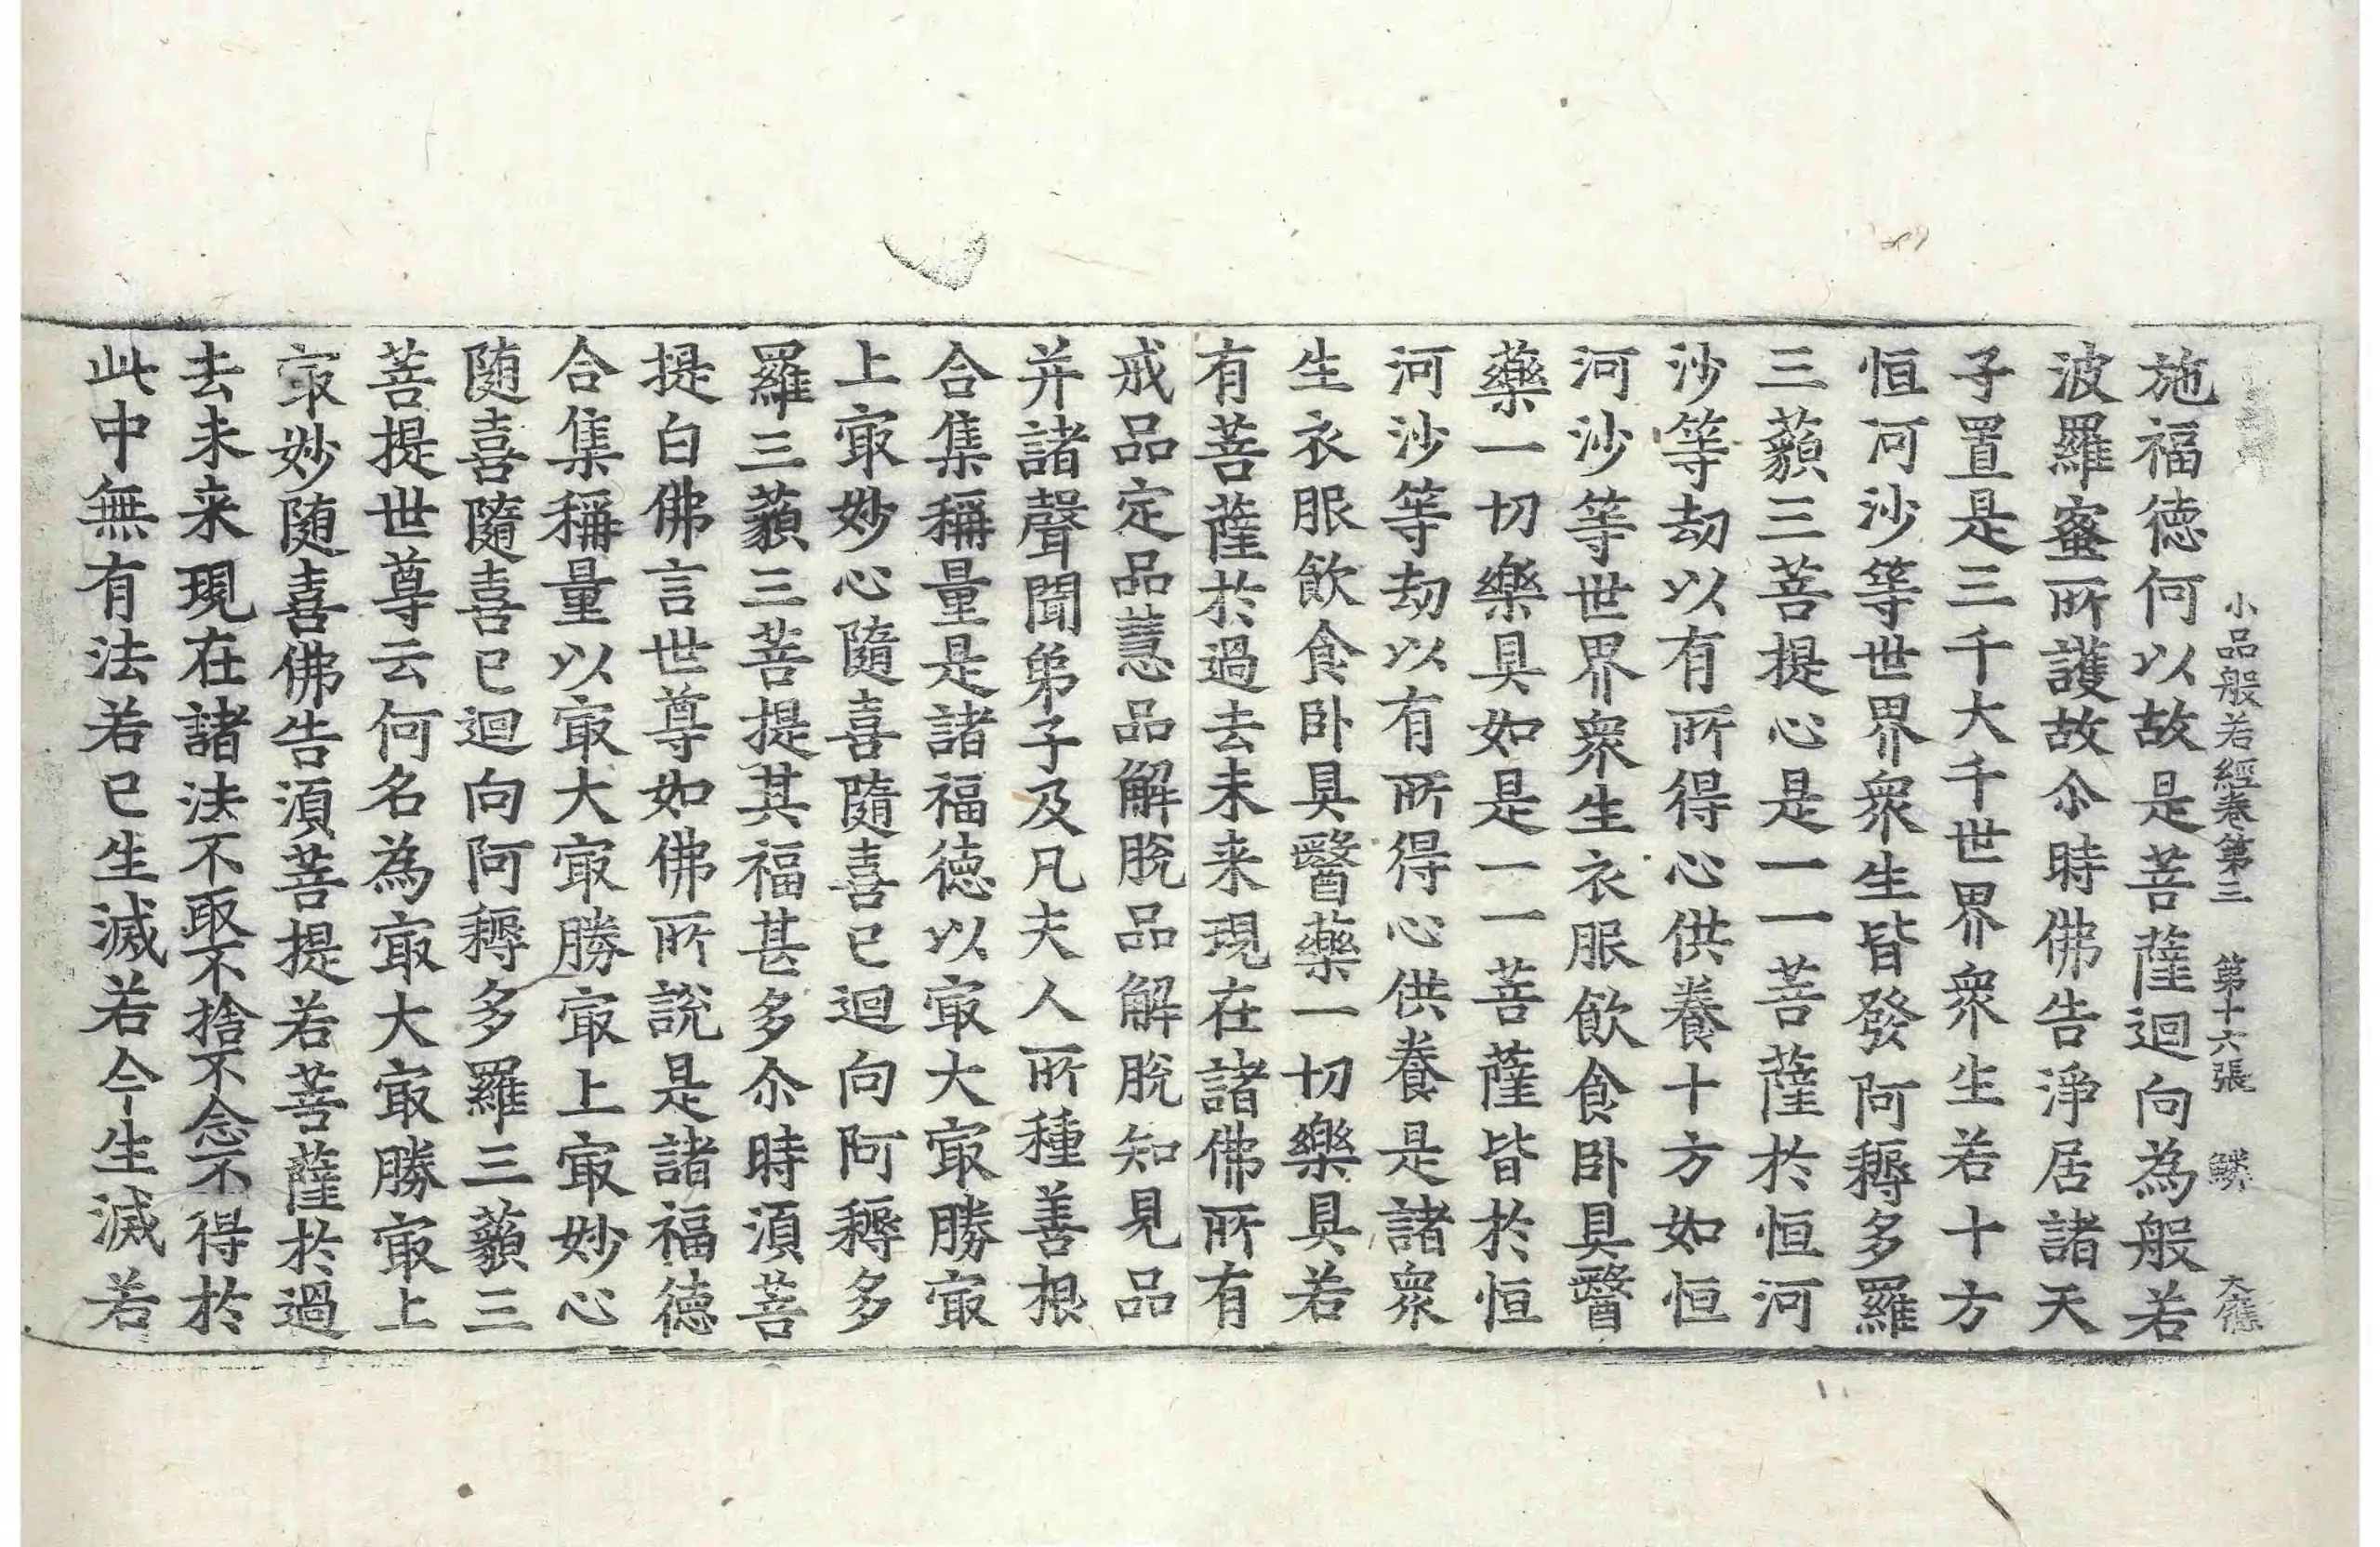 小品般若經卷第三　第十六張　鱗　大應
施福德何以故是菩薩迴向為般若
波羅蜜所護故尒時佛告淨居諸天
子置是三千大千世界衆生若十方
恒河沙等世界衆生皆發阿耨多羅
三藐三菩提心是一一菩薩於恒河
沙等劫以有所得心供養十方如恒
河沙等世界衆生衣服飲食卧具醫
藥一切樂具如是一一菩薩皆於恒
河沙等劫以有所得心供養是諸衆
生衣服飲食卧具醫藥一切樂具若
有菩薩於過去未来現在諸佛所有
戒品定品慧品解脫品解脫知見品
并諸聲聞弟子及凡夫人所種善根
合集稱量是諸福德以㝡大㝡勝㝡
上㝡妙心隨喜隨喜已迴向阿耨多
羅三藐三菩提其福甚多尒時湏菩
提白佛言世尊如佛所說是諸福德
合集稱量以㝡大㝡勝㝡上㝡妙心
随喜隨喜已迴向阿耨多羅三藐三
菩提世尊云何名為㝡大㝡勝㝡上
㝡妙随喜佛告湏菩提若菩薩於過
去未来現在諸法不取不捨不念不得於
此中無有法若已生滅若今生滅若